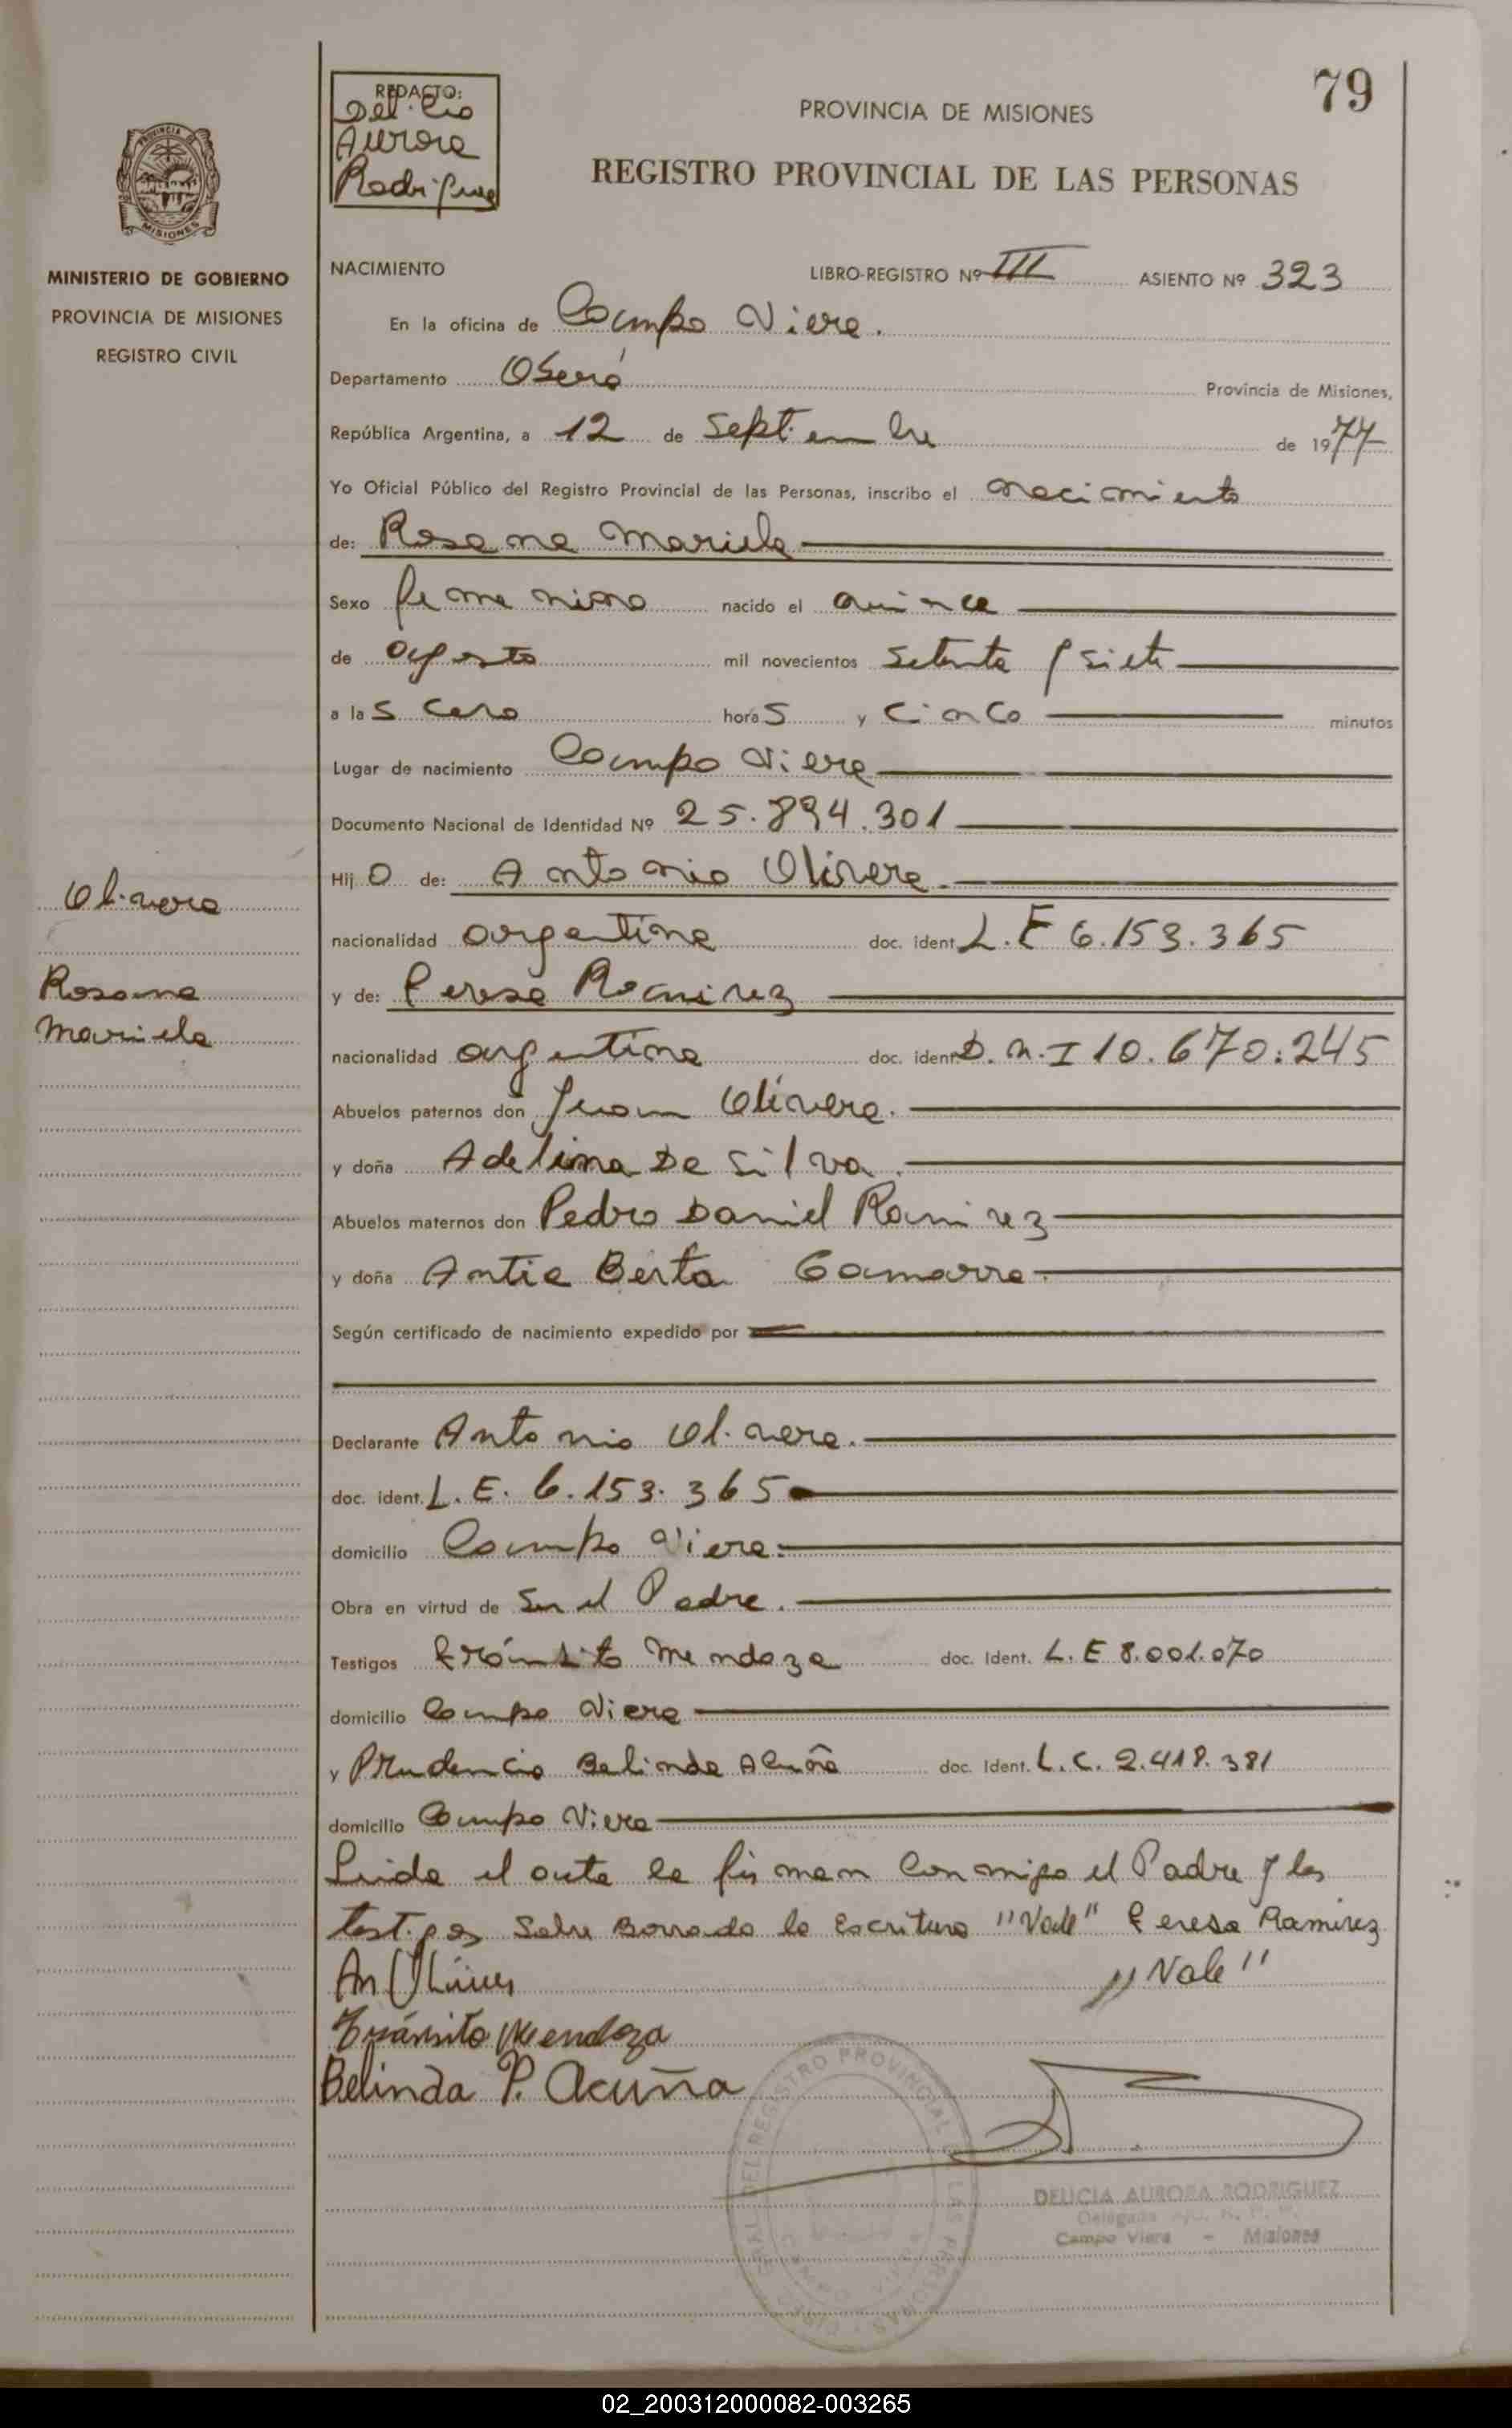 79
REDACTO:
Delicia
Aurora
Rodriguez
PROVINCIA DE MISIONES
REGISTRO PROVINCIAL DE LAS PERSONAS
PROVINCIA DE
MISIONES
MINISTERIO DE GOBIERNO
PROVINCIA DE MISIONES
REGISTRO CIVIL
NACIMIENTO LIBRO-REGISTRO Nº III ASIENTO Nº 323
En la oficina de Campo Viera.
Departamento Oberá Provincia de Misiones,
República Argentina, a 12 de Septiembre de 1977
Yo Oficial Público del Registro Provincial de las Personas, inscribo el nacimiento
de: Rosana Mariela
Sexo femenino nacido el quince
de agosto mil novecientos setenta y siete
a las cero horas y cinco minutos
Lugar de nacimiento Campo Viera
Documento Nacional de Identidad Nº 25.894.301
Hijo de: Antonio Olivera.
Olivera
nacionalidad argentina doc. ident. L.E 6.153.365
Rosana
y de: Teresa Ramirez
Mariela
nacionalidad argentina doc. ident. D.N.I 10.670.245
Abuelos paternos don Juan Olivera.
y doña Adelina De Silva.
Abuelos maternos don Pedro Daniel Ramirez
y doña Antia Berta Gamarra.
Según certificado de nacimiento expedido por
Declarante Antonio Olivera.
doc. ident. L.E. 6.153.365
domicilio Campo Viera.
Obra en virtud de Ser el Padre.
Testigos Tránsito Mendoza doc. Ident. L.E 8.001.070
domicilio Campo Viera
y Prudencia Belinda Acuña doc. Ident. L.C. 2.418.381
domicilio Campo Viera
Leida el acta la firman conmigo el Padre y los
testigos Sobre Borrado la Escritura "Vale" Teresa Ramirez
"Vale"
Tránsito Mendoza
Belinda P. Acuña
DELICIA AURORA RODRIGUEZ
Delegada
Campo Viera - Misiones
02_200312000082-003265